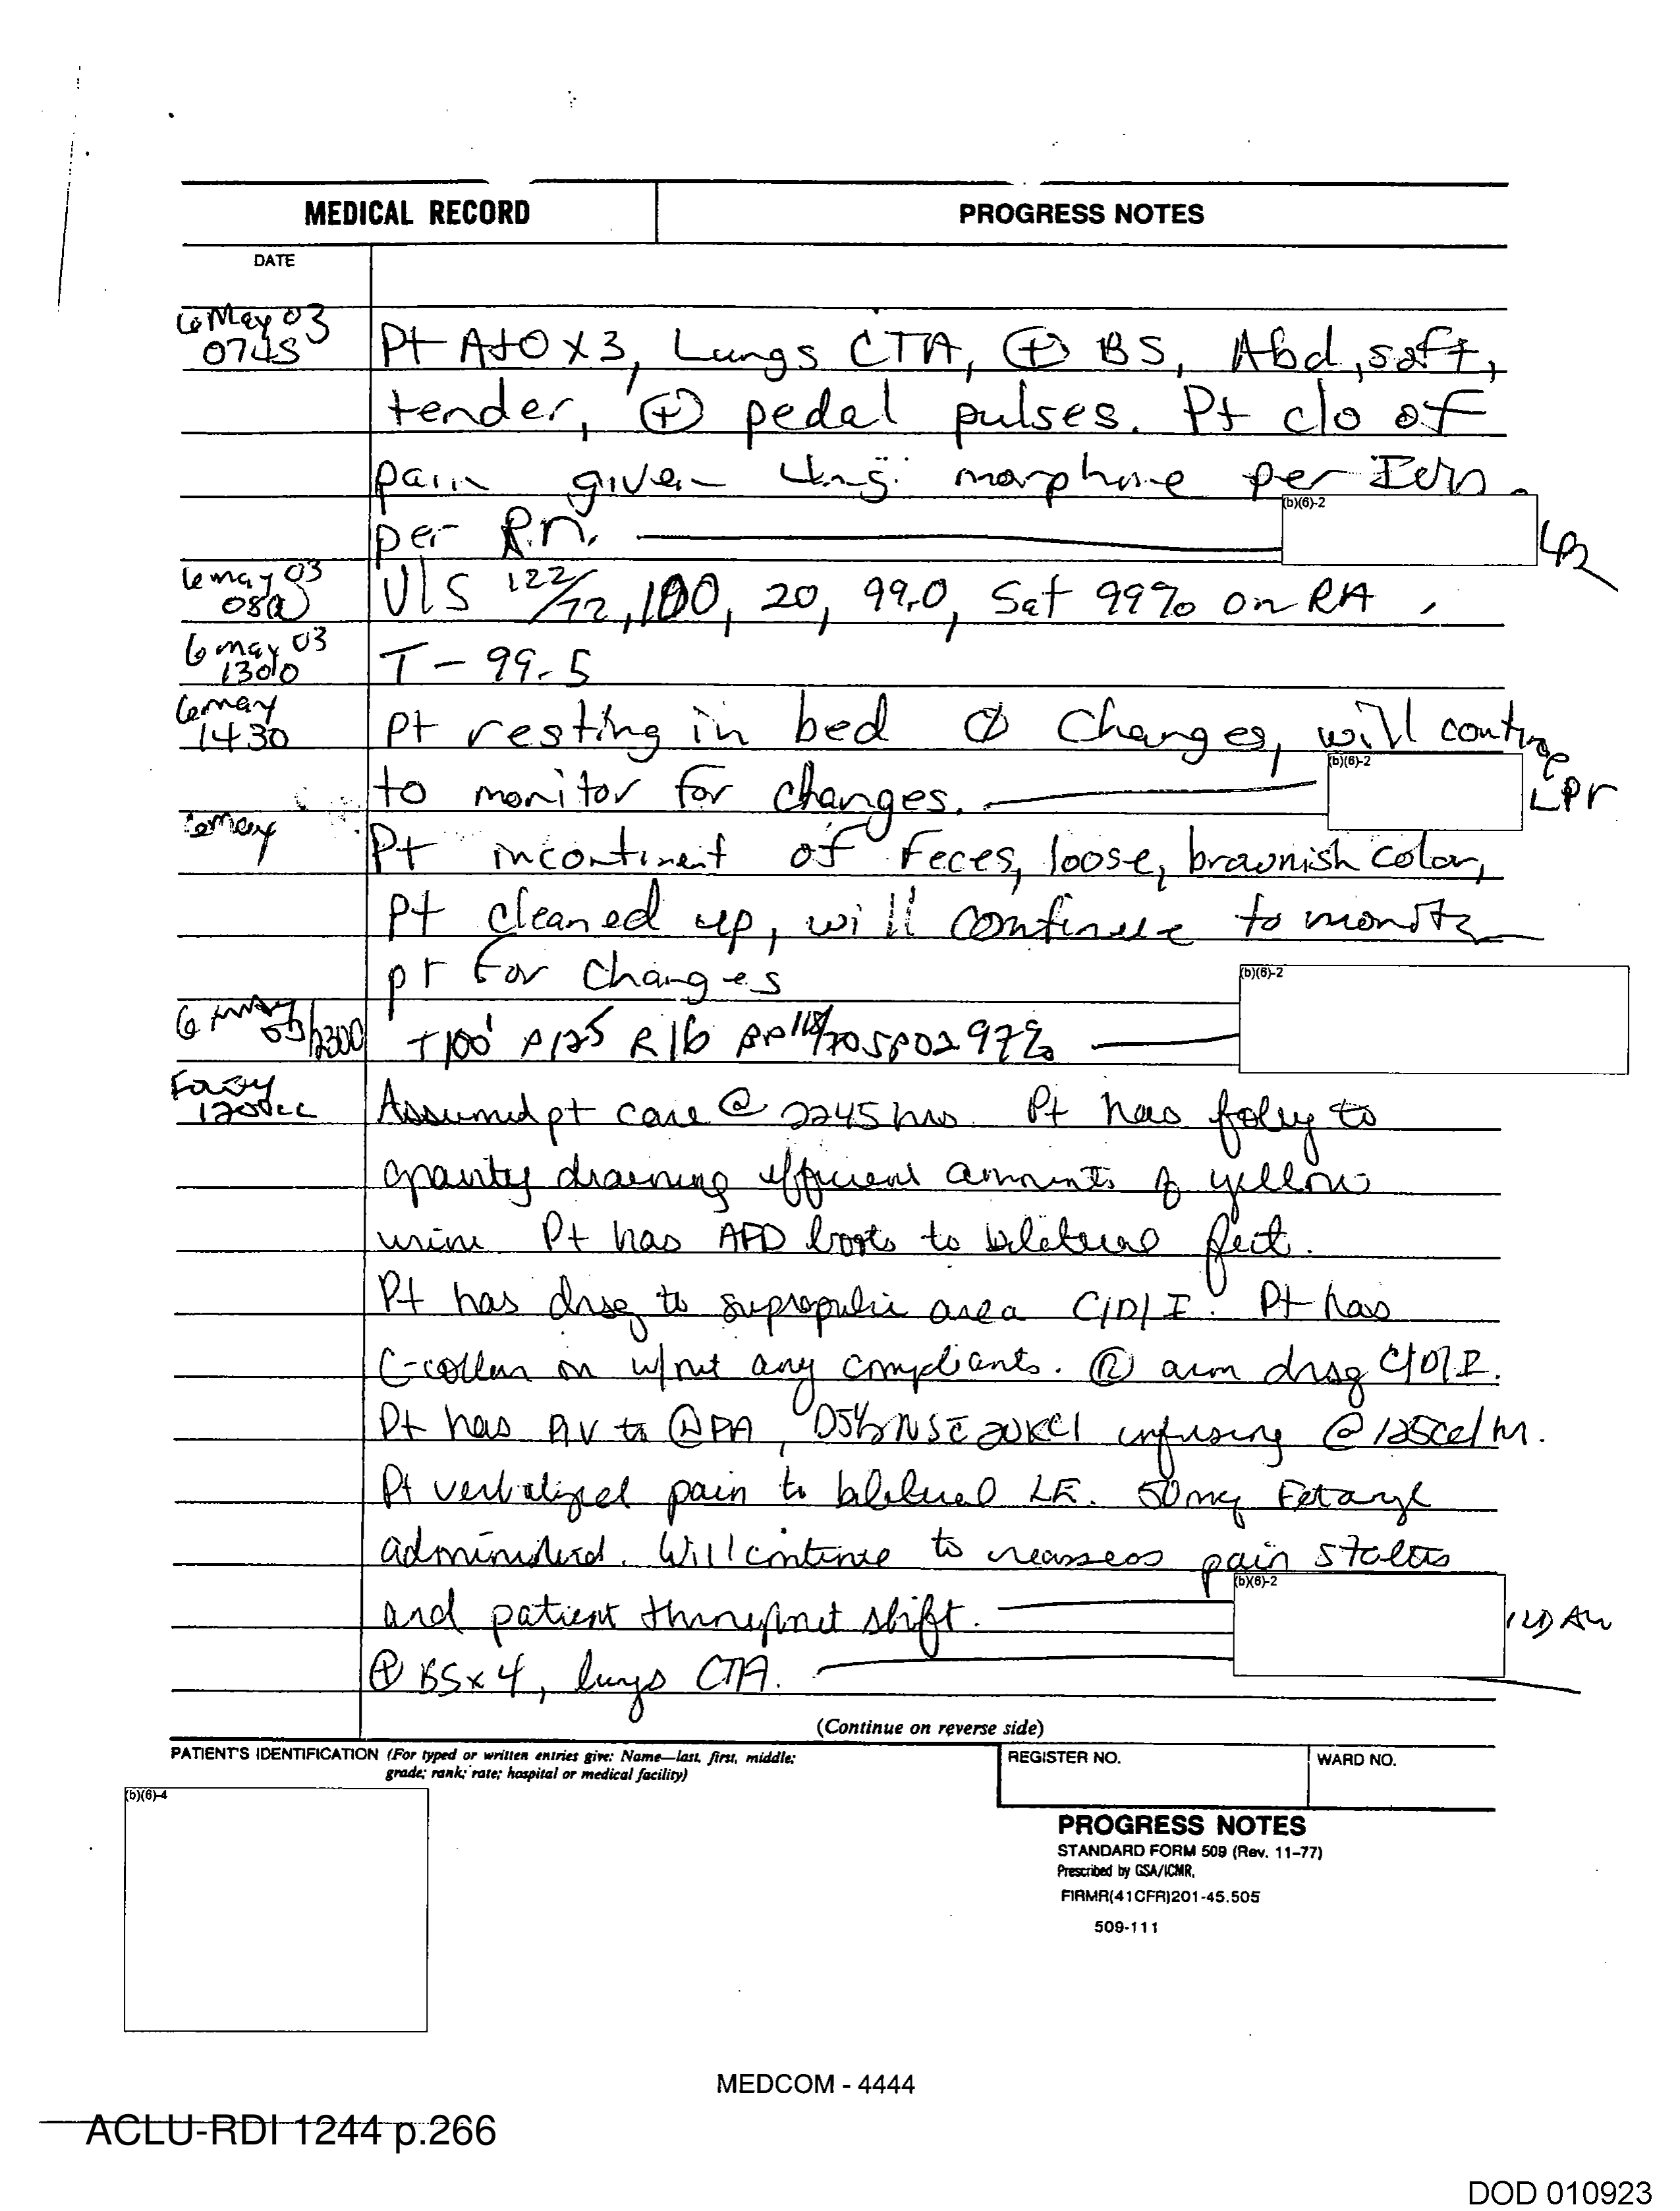 MEDICAL RECORD
PROGRESS NOTES
DATE
6 May 03
0745
Pt A+O x 3, Lungs CTA, ⊕ BS, Abd, soft,
tender, ⊕ pedal pulses. Pt c/o of
pain given 4mg morphine per
per R.N.
(b)(6)-2
6 may 03
V/S 122/72, 100, 20, 99.0, Sat 99% on RA
6 may 03
1300
T - 99.5
6 may
1430
pt resting in bed Ø Changes, will continue
to monitor for changes.
(b)(6)-2
6 may
Pt incontinent of Feces, loose, brownish color,
pt cleaned up, will continue to monitor
pt For Changes
(b)(6)-2
6 may 03/2300
T100¹ P125 R16 BP 118/70 SPO2 97%
1200cc
Assumed pt care @ 2245 hrs Pt has foley to
gravity draining efficient amounts of yellow
urine Pt has AFD boots to bilateral feet.
Pt has drsg to suprapubic area C/D/I. Pt has
C-collar on w/out any compliants. Ⓡ arm drsg C/D/I.
Pt has PIV to FA, D5½NS c̄ 20KCl infusing @ 125cc/hr.
Pt verbalized pain to bilateral LE. 50mg
administerd. Will continue to reassess pain status
and patient throughout shift.
(b)(6)-2
⊕ BS x 4, lungs CTA.
(Continue on reverse side)
PATIENT'S IDENTIFICATION (For typed or written entries give: Name—last, first, middle;
grade; rank; rate; hospital or medical facility)
REGISTER NO.
WARD NO.
(b)(6)-4
PROGRESS NOTES
STANDARD FORM 509 (Rev. 11-77)
Prescribed by GSA/ICMR,
FIRMR(41CFR)201-45.505
509-111
MEDCOM - 4444
ACLU-RDI 1244 p.266
DOD 010923